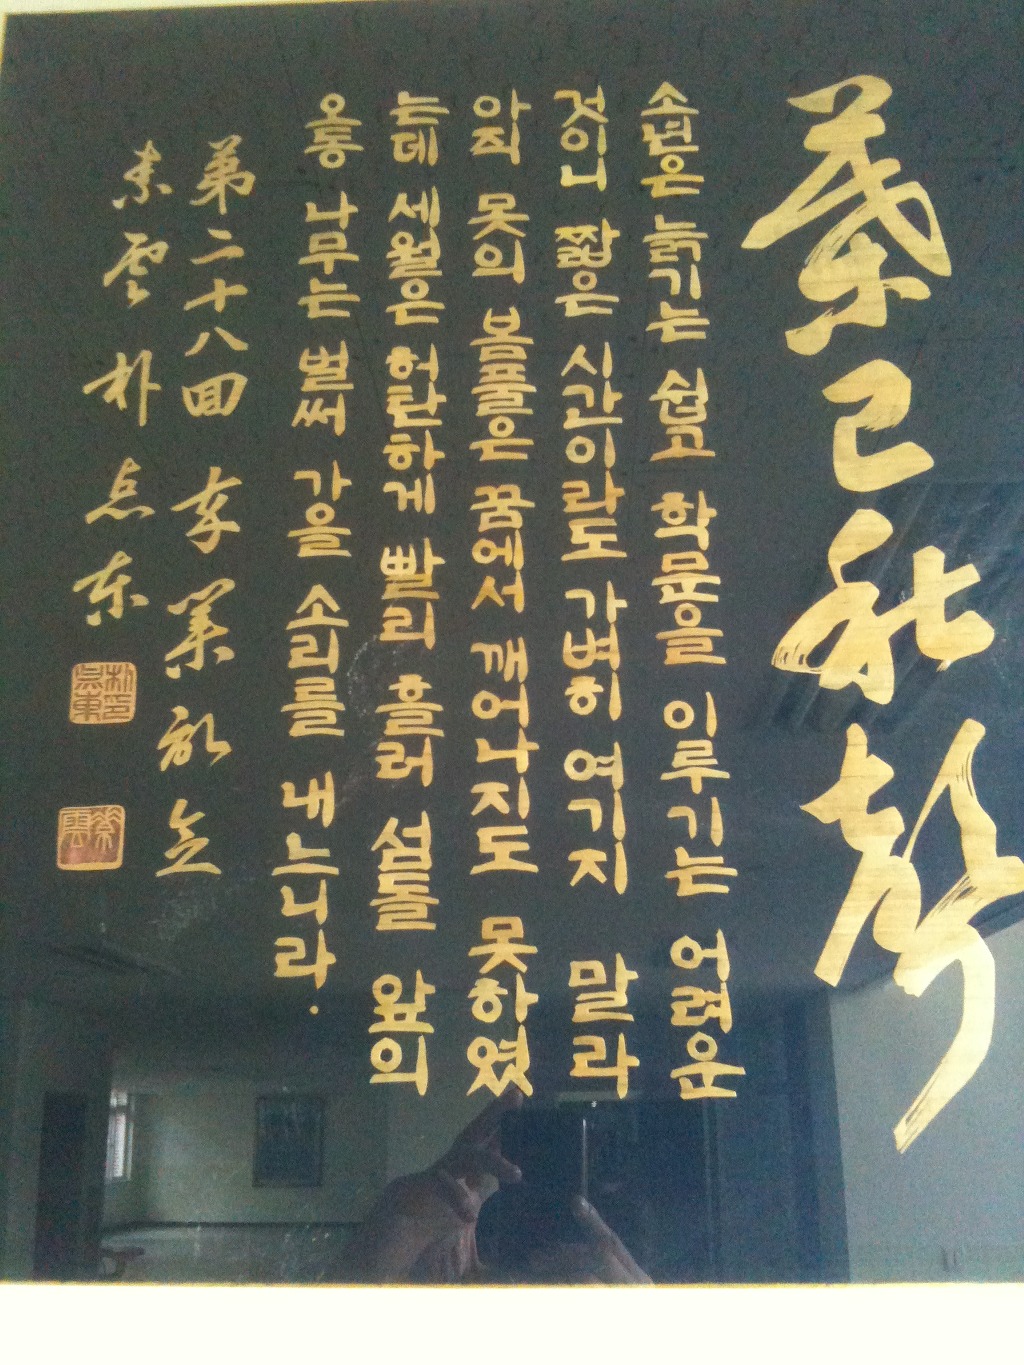 葉已秋聲
소년은 늙기는 쉽고 학문을 이루기는 어려운
것이니 짧은 시간이라도 가벼히 여기지 말라
아직 못의 봄풀은 꿈에서 깨어나지도 못하였
는데 세월은 허탄하게 빨리 흘러 섬돌 앞의
오동 나무는 벌써 가을 소리를 내느니라.
第二十八回
雲 朴